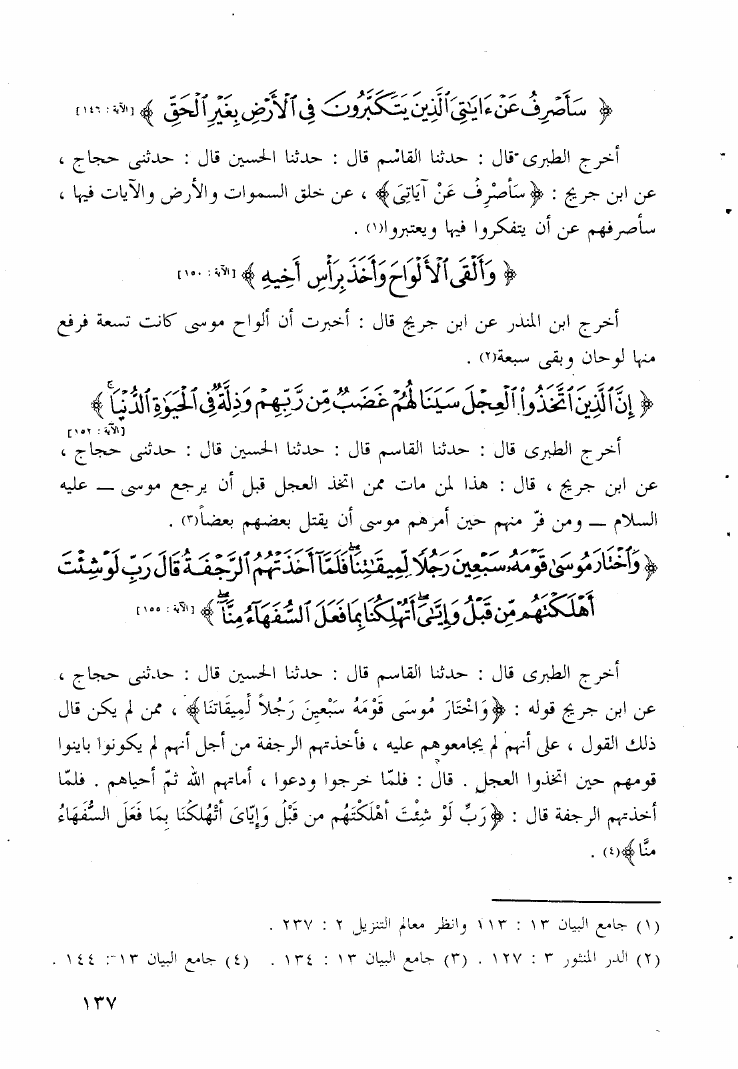 ﴿ سَأَصْرِفُ عَنْ ءَايَٰتِيَ ٱلَّذِينَ يَتَكَبَّرُونَ فِي ٱلْأَرْضِ بِغَيْرِ ٱلْحَقِّ ﴾ [الآية : ١٤٦]
أخرج الطبرى قال : حدثنا القاسم قال : حدثنا الحسين قال : حدثنى حجاج ،
عن ابن جريج : ﴿سَأَصْرِفُ عَنْ آيَاتِىَ﴾ ، عن خلق السموات والأرض والآيات فيها ،
سأصرفهم عن أن يتفكروا فيها ويعتبروا(١) .
﴿ وَأَلْقَى ٱلْأَلْوَاحَ وَأَخَذَ بِرَأْسِ أَخِيهِ ﴾ [الآية : ١٥٠]
أخرج ابن المنذر عن ابن جريج قال : أخبرت أن ألواح موسى كانت تسعة فرفع
منها لوحان وبقى سبعة(٢) .
﴿ إِنَّ ٱلَّذِينَ ٱتَّخَذُوا۟ ٱلْعِجْلَ سَيَنَالُهُمْ غَضَبٌ مِّن رَّبِّهِمْ وَذِلَّةٌ فِي ٱلْحَيَوٰةِ ٱلدُّنْيَا ﴾
[الآية : ١٥٢]
أخرج الطبرى قال : حدثنا القاسم قال : حدثنا الحسين قال : حدثنى حجاج ،
عن ابن جريج ، قال : هذا لمن مات ممن اتخذ العجل قبل أن يرجع موسى ــ عليه
السلام ــ ومن فرّ منهم حين أمرهم موسى أن يقتل بعضهم بعضاً(٣) .
﴿ وَٱخْتَارَ مُوسَىٰ قَوْمَهُۥ سَبْعِينَ رَجُلًا لِّمِيقَٰتِنَا فَلَمَّآ أَخَذَتْهُمُ ٱلرَّجْفَةُ قَالَ رَبِّ لَوْ شِئْتَ
أَهْلَكْتَهُم مِّن قَبْلُ وَإِيَّٰىَ أَتُهْلِكُنَا بِمَا فَعَلَ ٱلسُّفَهَآءُ مِنَّآ ﴾ [الآية : ١٥٥]
أخرج الطبرى قال : حدثنا القاسم قال : حدثنا الحسين قال : حدثنى حجاج ،
عن ابن جريج قوله : ﴿وَاخْتَارَ مُوسَى قَوْمَهُ سَبْعِينَ رَجُلاً لِمِيقَاتنَا﴾ ، ممن لم يكن قال
ذلك القول ، على أنهم لم يجامعوهم عليه ، فأخذتهم الرجفة من أجل أنهم لم يكونوا باينوا
قومهم حين اتخذوا العجل . قال : فلمّا خرجوا ودعوا ، أماتهم الله ثمّ أحياهم . فلمّا
أخذتهم الرجفة قال : ﴿رَبِّ لَوْ شِئْتَ أَهْلَكْتَهُم من قَبْلُ وَإِيَّاىَ أَتُهْلكُنَا بِمَا فَعَلَ السُّفَهَاءُ
منَّا﴾(٤) .
(١) جامع البيان ١٣ : ١١٣ وانظر معالم التنزيل ٢ : ٢٣٧ .
(٢) الدر المنثور ٣ : ١٢٧ . (٣) جامع البيان ١٣ : ١٣٤ . (٤) جامع البيان ١٣ : ١٤٤ .
١٣٧